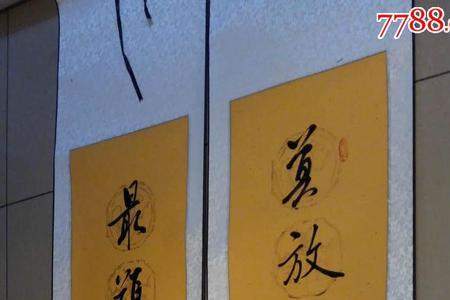 7788.
莫放
最